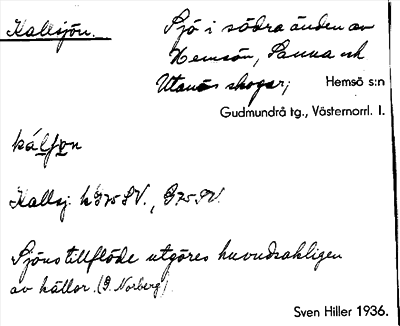 Kallsjön.
Sjö i södra änden av
Hemsön, Sanna och
Utanös skogar;
Hemsö s:n
Gudmundrå tg., Västernorrl. l.
kálfǫn
Kallsj. k 375 SV., G 75 SV.
Sjöns tillflöde utgöres huvudsakligen
av källor. (G. Norberg)
Sven Hiller 1936.